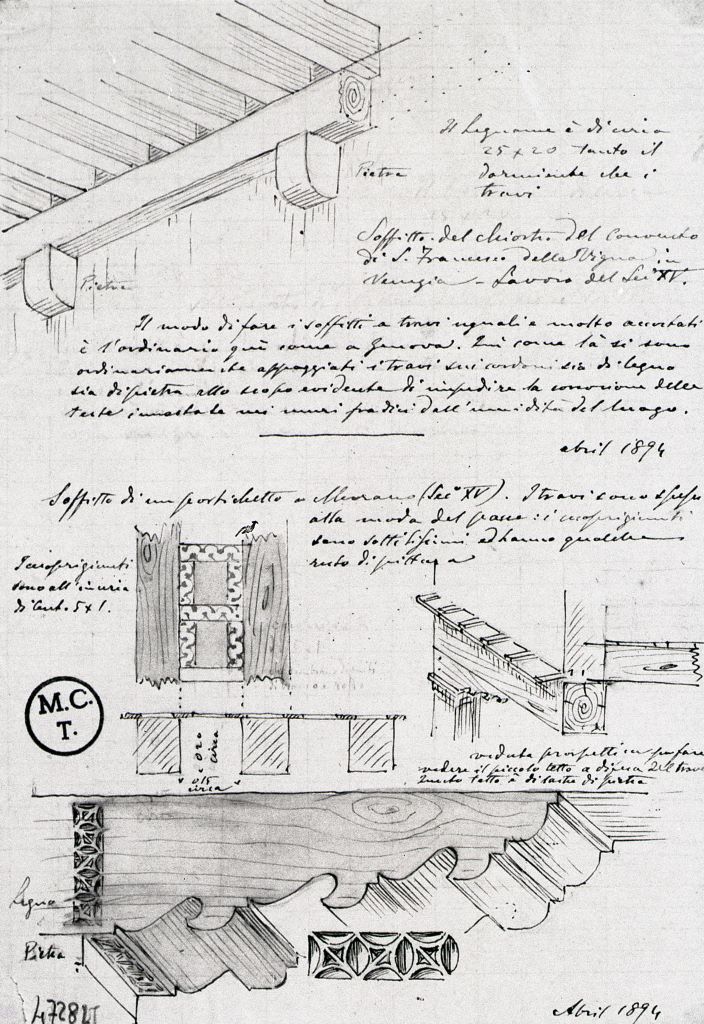 Il legname è di circa
25 x 20 tanto il
dormiente che i
travi
Pietra
Pietra
Soffitto del chiostro del Convento
di S. Francesco della Vigna in
Venezia - Lavoro del Sec° XV.
Il modo di fare i soffitti a travi uguali e molto accostati
è l'ordinario quì come a Genova. Qui come là si sono
ordinariamente appoggiati i travi sui cordoni sia di legno
sia di pietra allo scopo evidente di impedire la corrosione delle
teste innestate nei muri fradici dall'umidità del luogo.
abril 1894
Soffitto di un portichetto a Murano (Sec° XV). I travi sono spessi
alla moda del paese: i cooprigiunti
sono sottilissimi ed hanno qualche
resto di pittura
I cooprigiunti
sono all'incirca
di Cent. 5 x 1.
M.C.
T.
0,20
circa
0,15
circa
veduta prospettica per fare
vedere il piccolo tetto a difesa del trave
Questo tetto è di lastre di pietra
Legno
Pietra
4728LT
Abril 1894